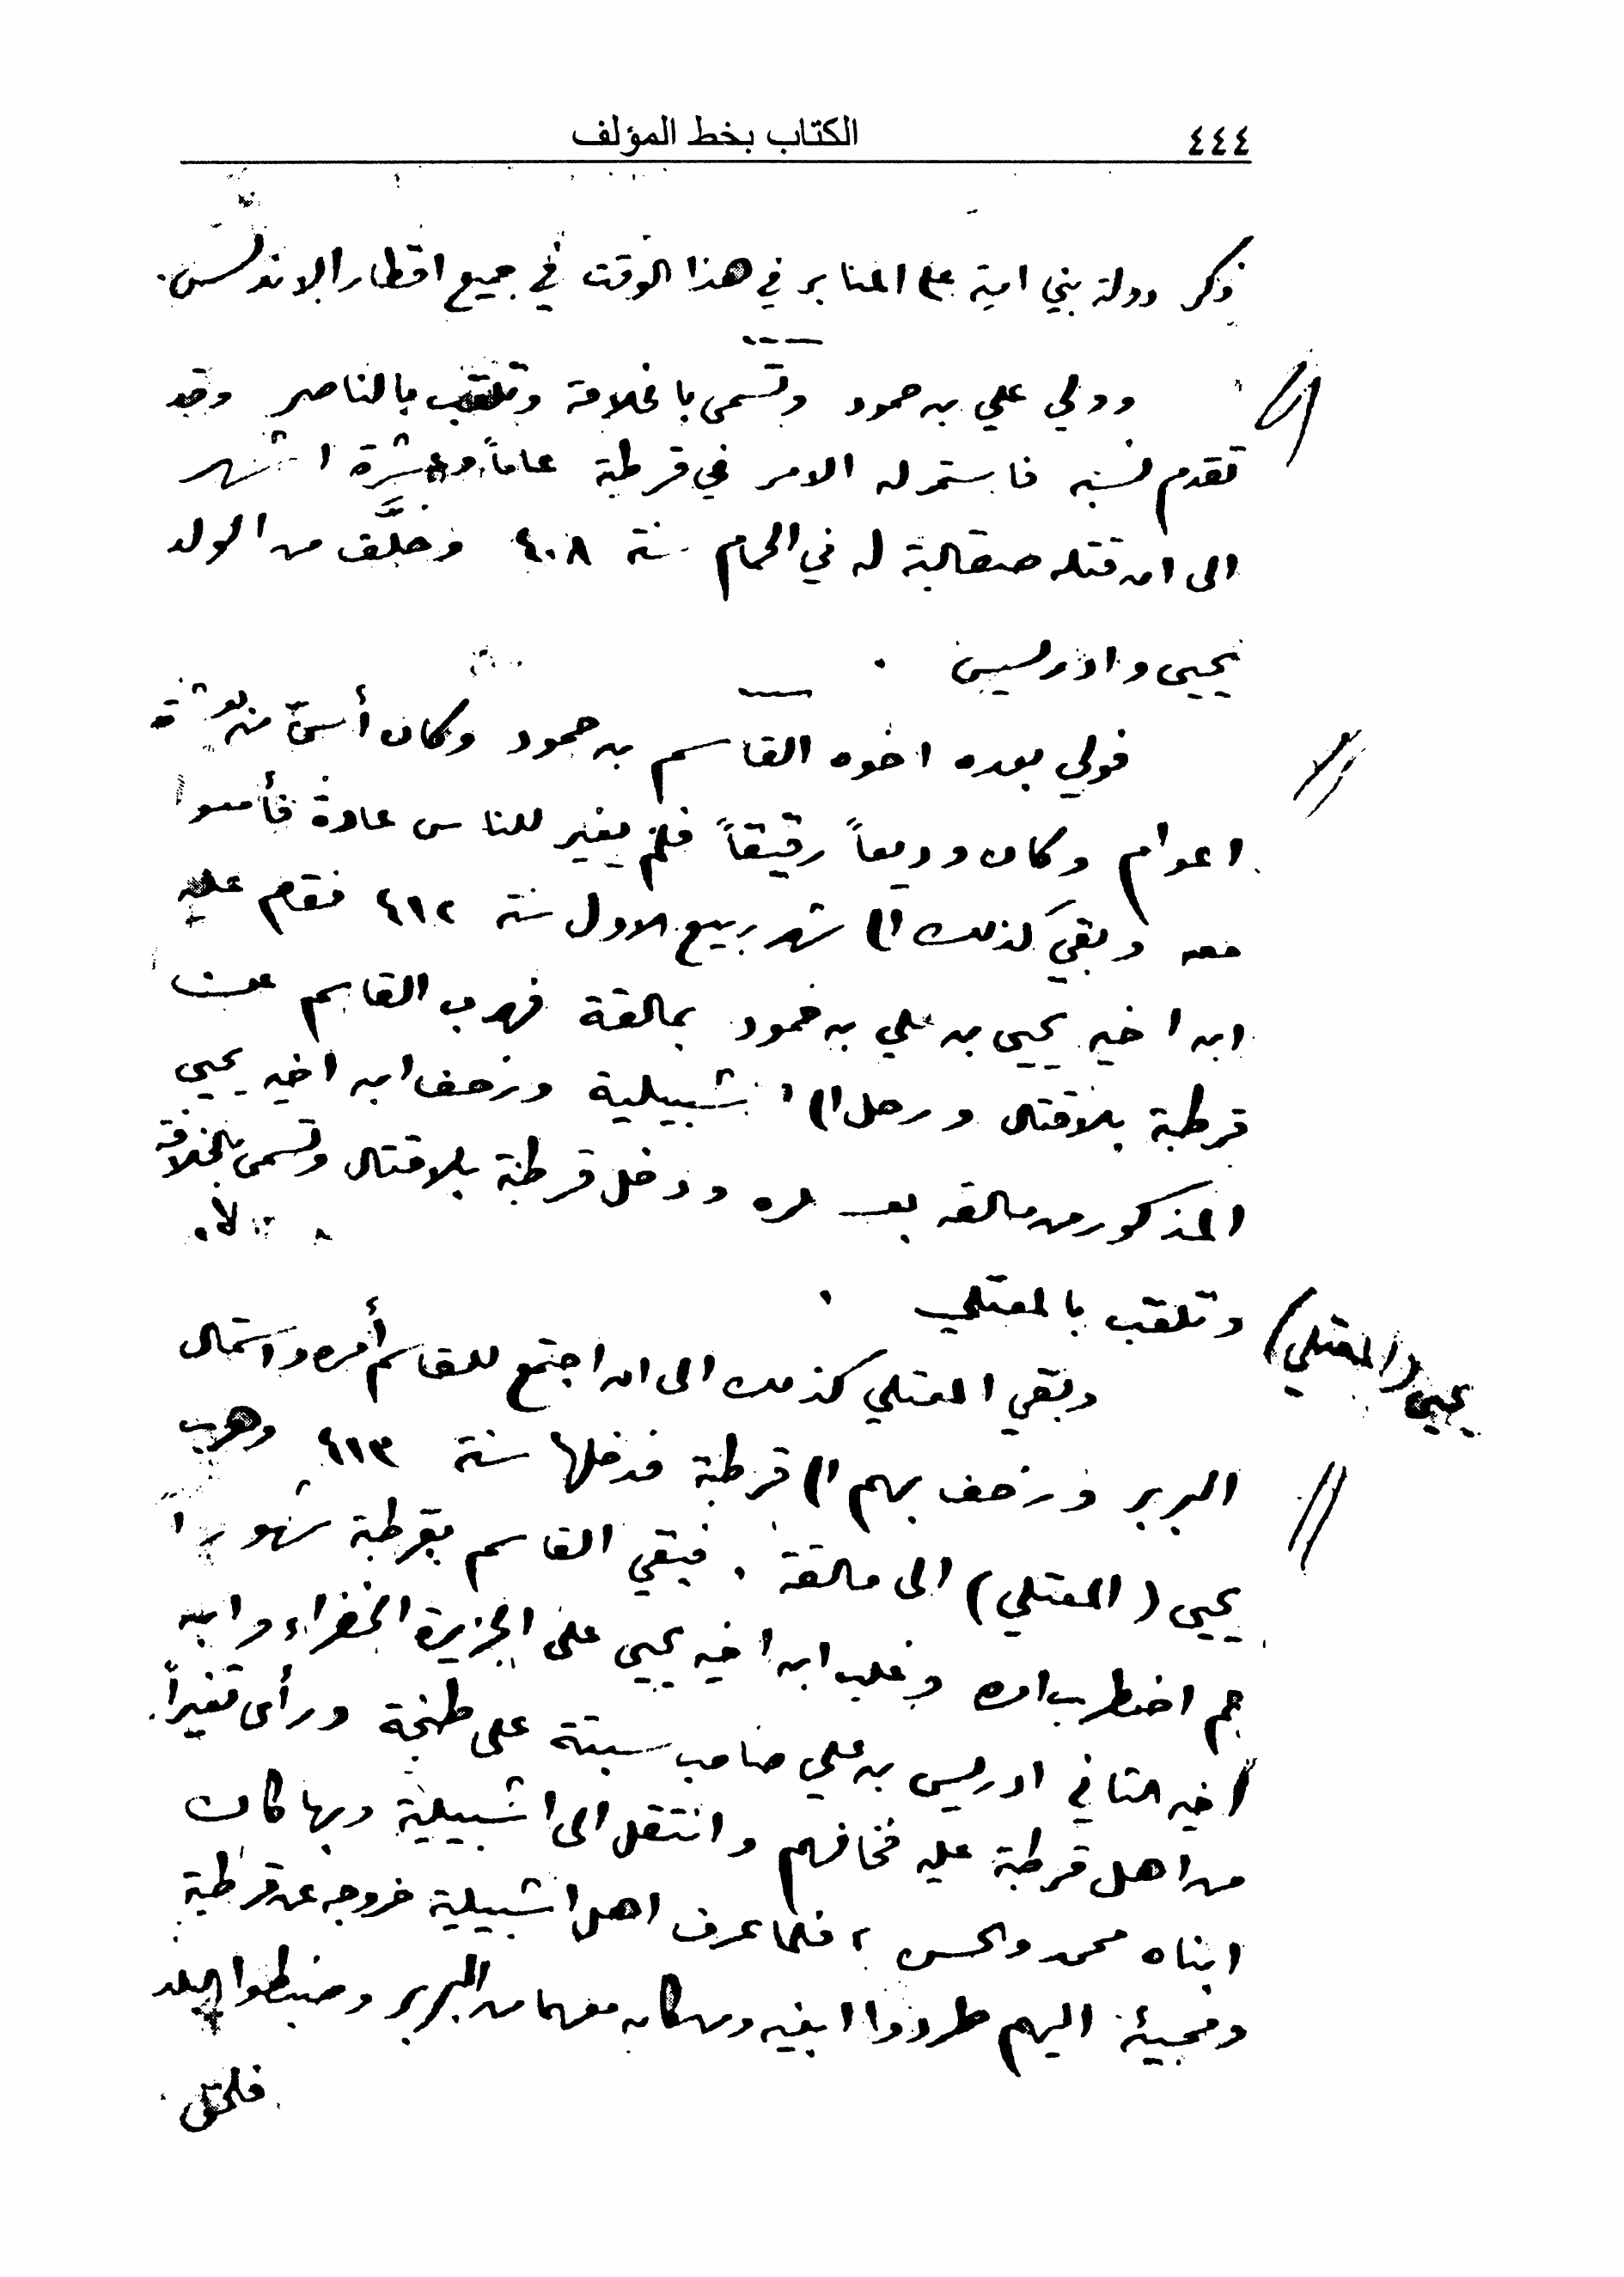 ٤٤٤
الكتاب بخط المؤلف
ذكر دولة بني امية على المنابر في هذا الوقت في جميع اقطار الاندلس.
وولي علي بن حمود وتسمى بالخلافة وتلقب بالناصر وقد
تقدم نسبه فاستمر له الامر في قرطبة عاماً وعشرة اشهر
الى ان قتله صقالبة له في الحمام سنة ٤٠٨ وخلَّف من الولد
يحيى وادريس .
فولي بعده اخوه القاسم بن حمود وكان أسنّ منه بعشرة
اعوام وكان وديعاً رقيقاً فلم يغير للناس عادة فأمنوا
معه وبقي كذلك الى شهر ربيع الاول سنة ٤١٢ فقام عليه
ابن اخيه يحيى بن علي بن حمود بمالقة فهرب القاسم عن
قرطبة بلا قتال ورحل الى اشبيلية وزحف ابن اخيه يحيى
المذكور من مالقة بعسكره ودخل قرطبة بلا قتال وتسمى بالخلافة
وتلقب بالمعتلي .
يحيى (المعتلي)
وبقي المعتلي كذلك الى ان اجتمع للقاسم أمره واستمال
البربر وزحف بهم الى قرطبة فدخلها سنة ٤١٣ وهرب
يحيى (المعتلي) الى مالقة . فبقي القاسم بقرطبة شهوراً
ثم اضطرب امره وغلب ابن اخيه يحيى على الجزيرة الخضراء وابن
أخيه الثاني ادريس بن علي صاحب سبتة على طنجة ورأى تغيراً
من اهل قرطبة عليه فخافهم وانتقل الى اشبيلية وبها كان
ابناه محمد والحسن ، فلما عرف اهل اشبيلية خروجه عن قرطبة
ومجيئه اليهم طردوا ابنيه ومن كان معهما من البربر وضبطوا البلد
فلحق